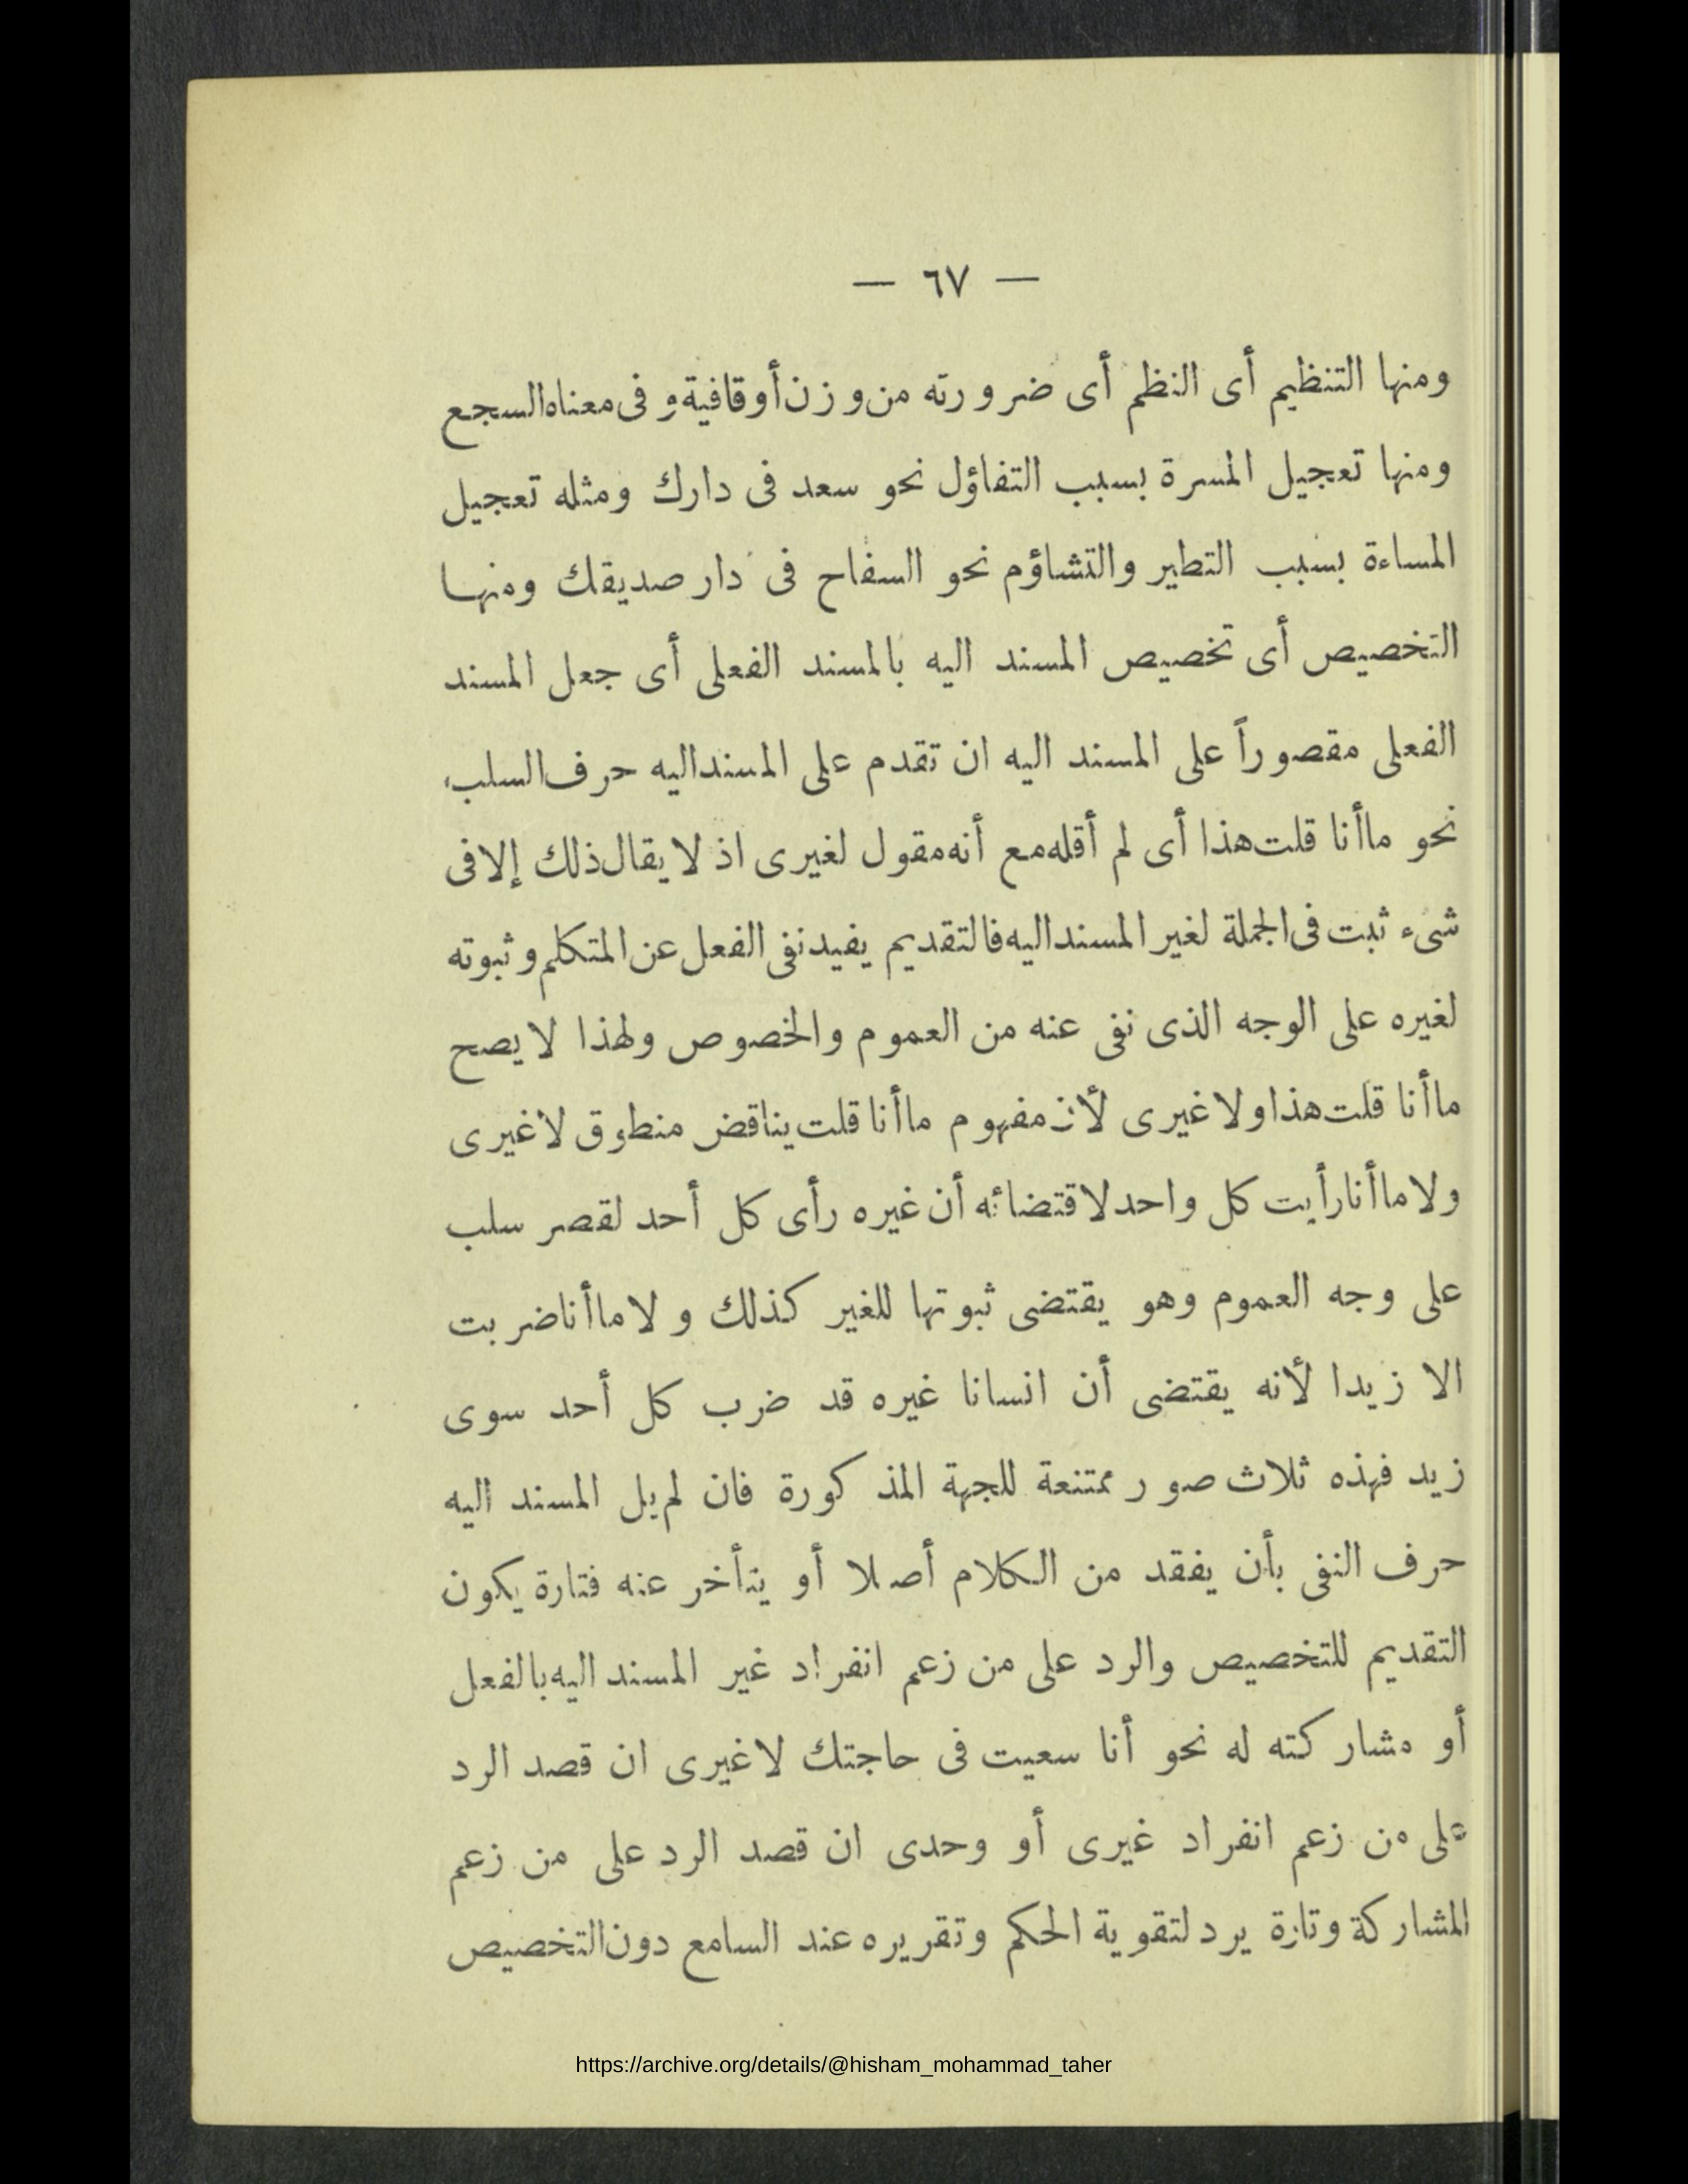 — ٦٧ —
ومنها التنظيم أى النظم أى ضرورته من وزن أو قافية و فى معناه السجع
ومنها تعجيل المسرة بسبب التفاؤل نحو سعد فى دارك ومثله تعجيل
المساءة بسبب التطير والتشاؤم نحو السفاح فى دار صديقك ومنها
التخصيص أى تخصيص المسند اليه بالمسند الفعلى أى جعل المسند
الفعلى مقصوراً على المسند اليه ان تقدم على المسند اليه حرف السلب
نحو ما أنا قلت هذا أى لم أقله مع أنه مقول لغيرى اذ لا يقال ذلك إلا فى
شىء ثبت فى الجملة لغير المسند اليه فالتقديم يفيد نفى الفعل عن المتكلم و ثبوته
لغيره على الوجه الذى نفى عنه من العموم والخصوص ولهذا لا يصح
ما أنا قلت هذا ولا غيرى لأن مفهوم ما أنا قلت يناقض منطوق لا غيرى
ولا ما أنا رأيت كل واحد لاقتضائه أن غيره رأى كل أحد لقصر سلب
على وجه العموم وهو يقتضى ثبوتها للغير كذلك و لا ما أنا ضربت
الا زيدا لأنه يقتضى أن انسانا غيره قد ضرب كل أحد سوى
زيد فهذه ثلاث صور ممتنعة للجهة المذكورة فان لم يل المسند اليه
حرف النفى بأن يفقد من الكلام أصلا أو يتأخر عنه فتارة يكون
التقديم للتخصيص والرد على من زعم انفراد غير المسند اليه بالفعل
أو مشاركته له نحو أنا سعيت فى حاجتك لا غيرى ان قصد الرد
على من زعم انفراد غيرى أو وحدى ان قصد الرد على من زعم
المشاركة وتارة يرد لتقوية الحكم وتقريره عند السامع دون التخصيص
https://archive.org/details/@hisham_mohammad_taher